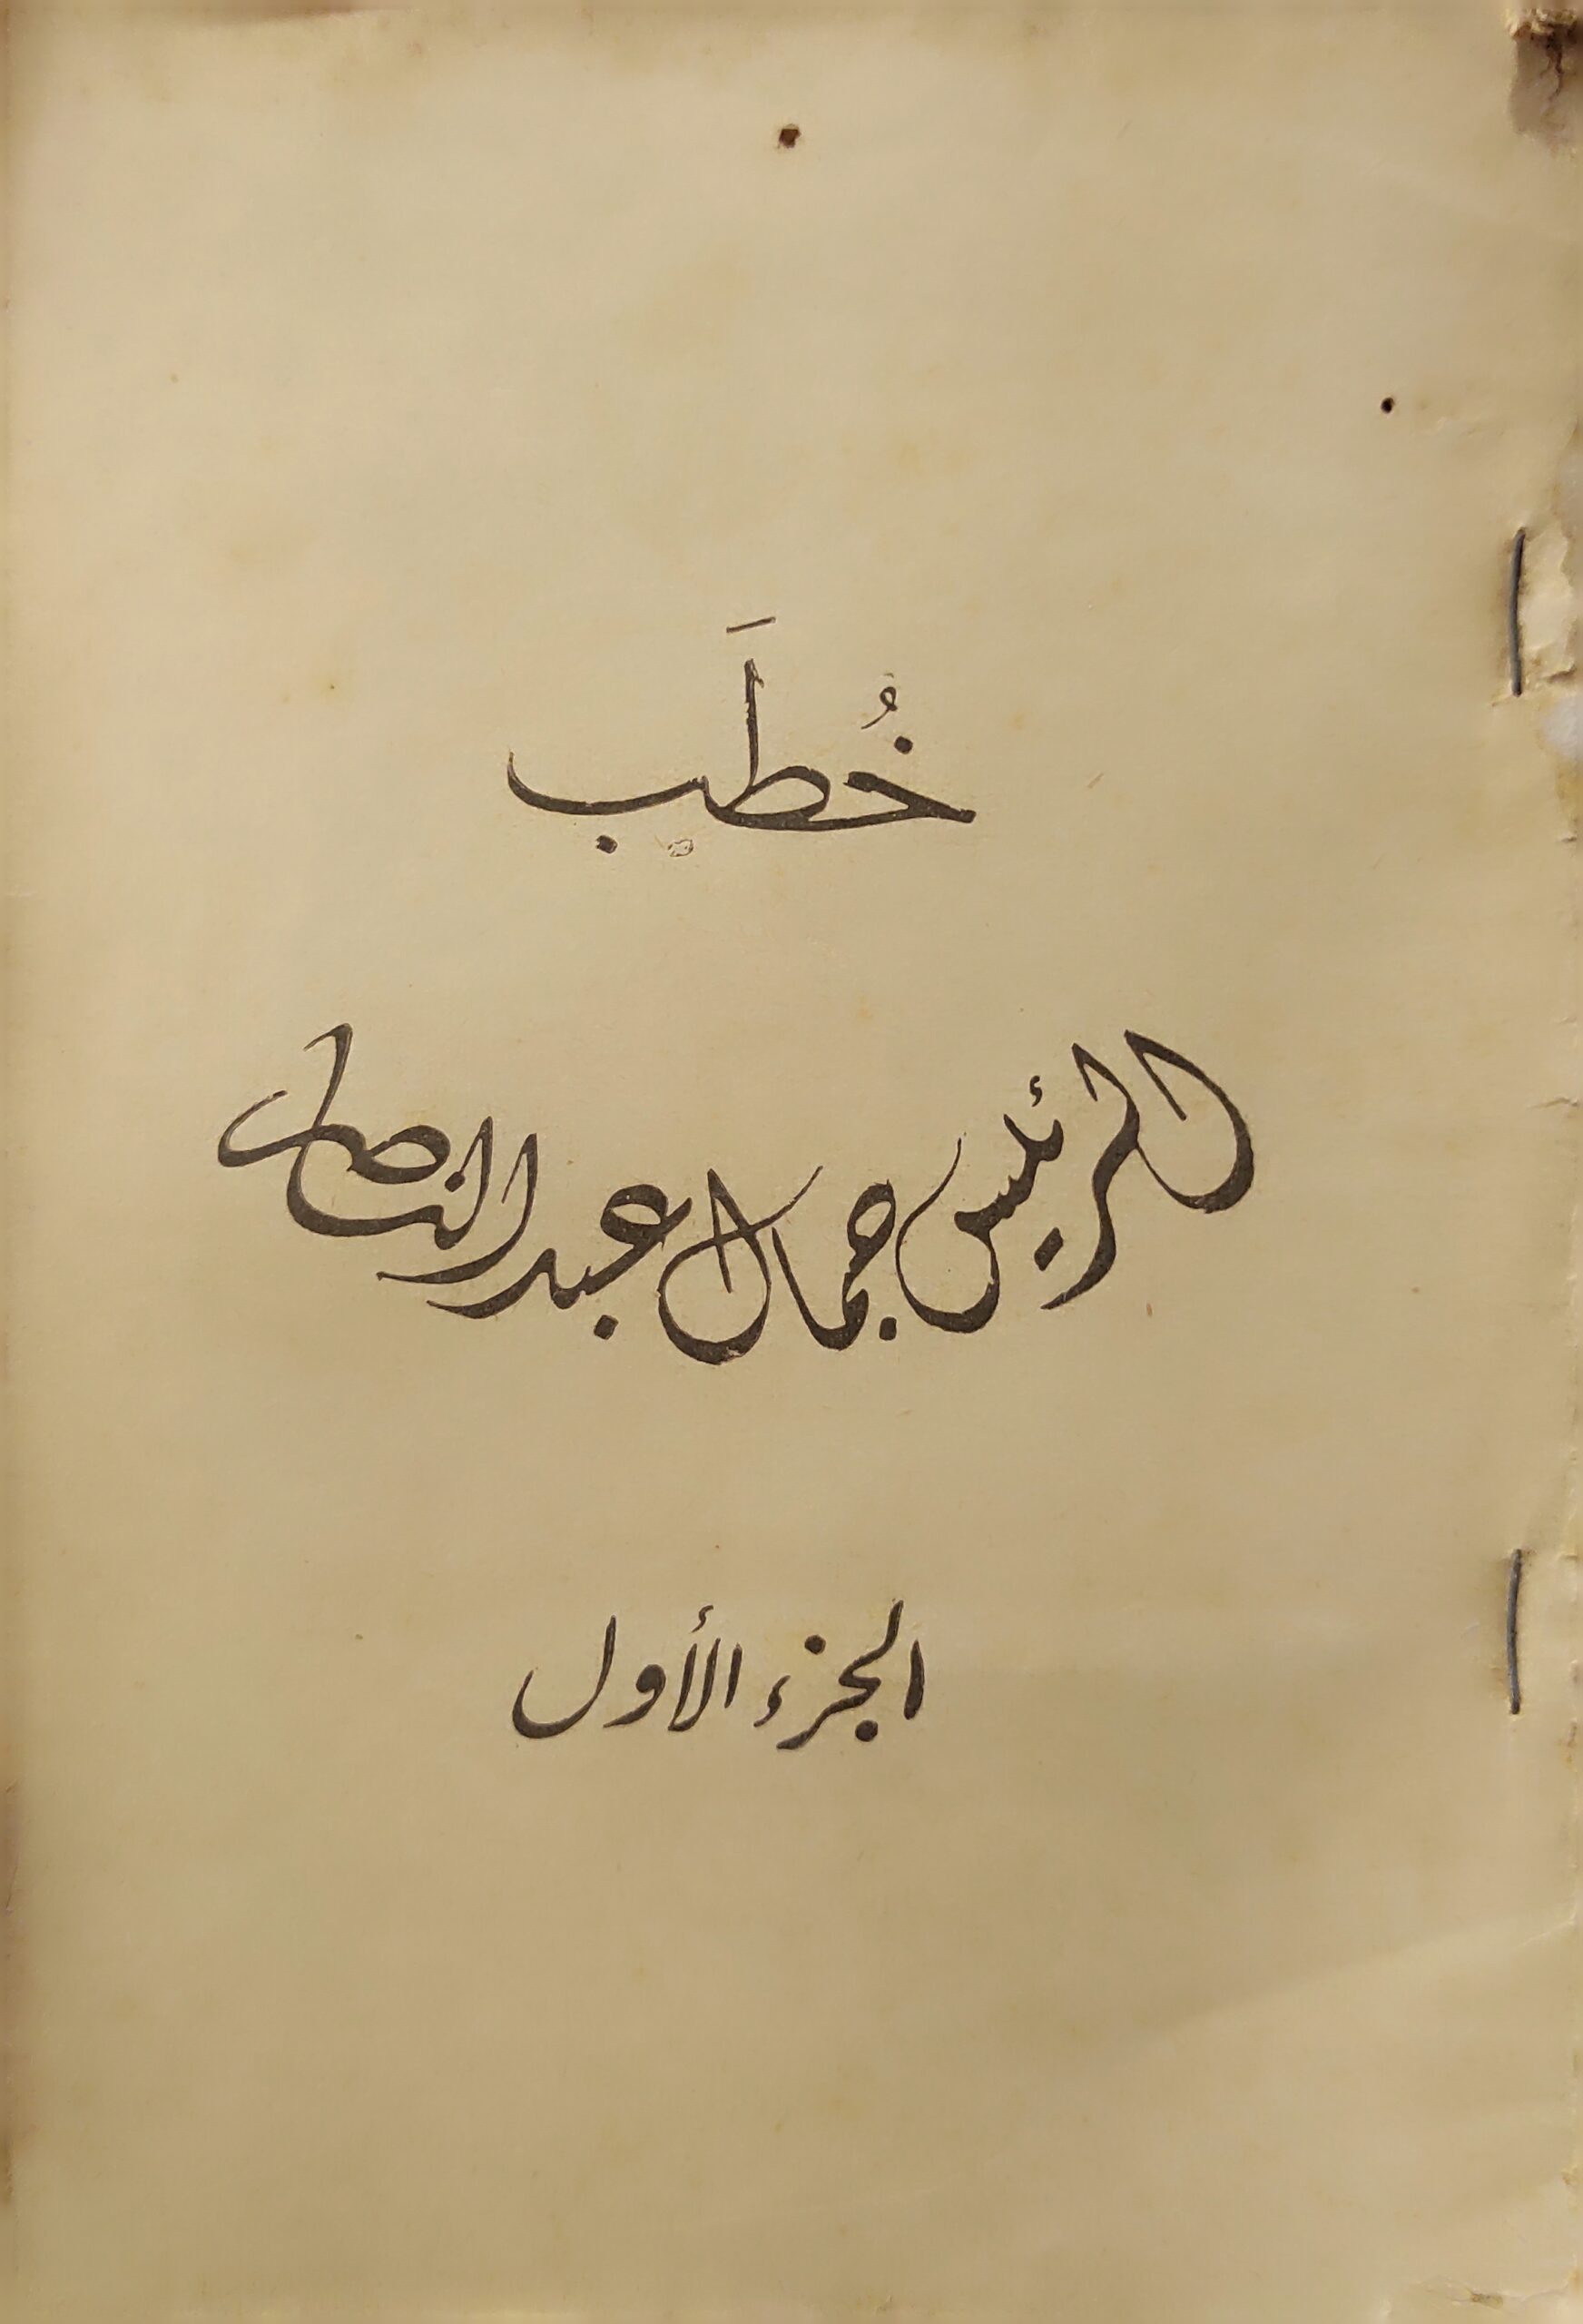 خُطَب
الرئيس جمال عبد الناصر
الجزء الأول